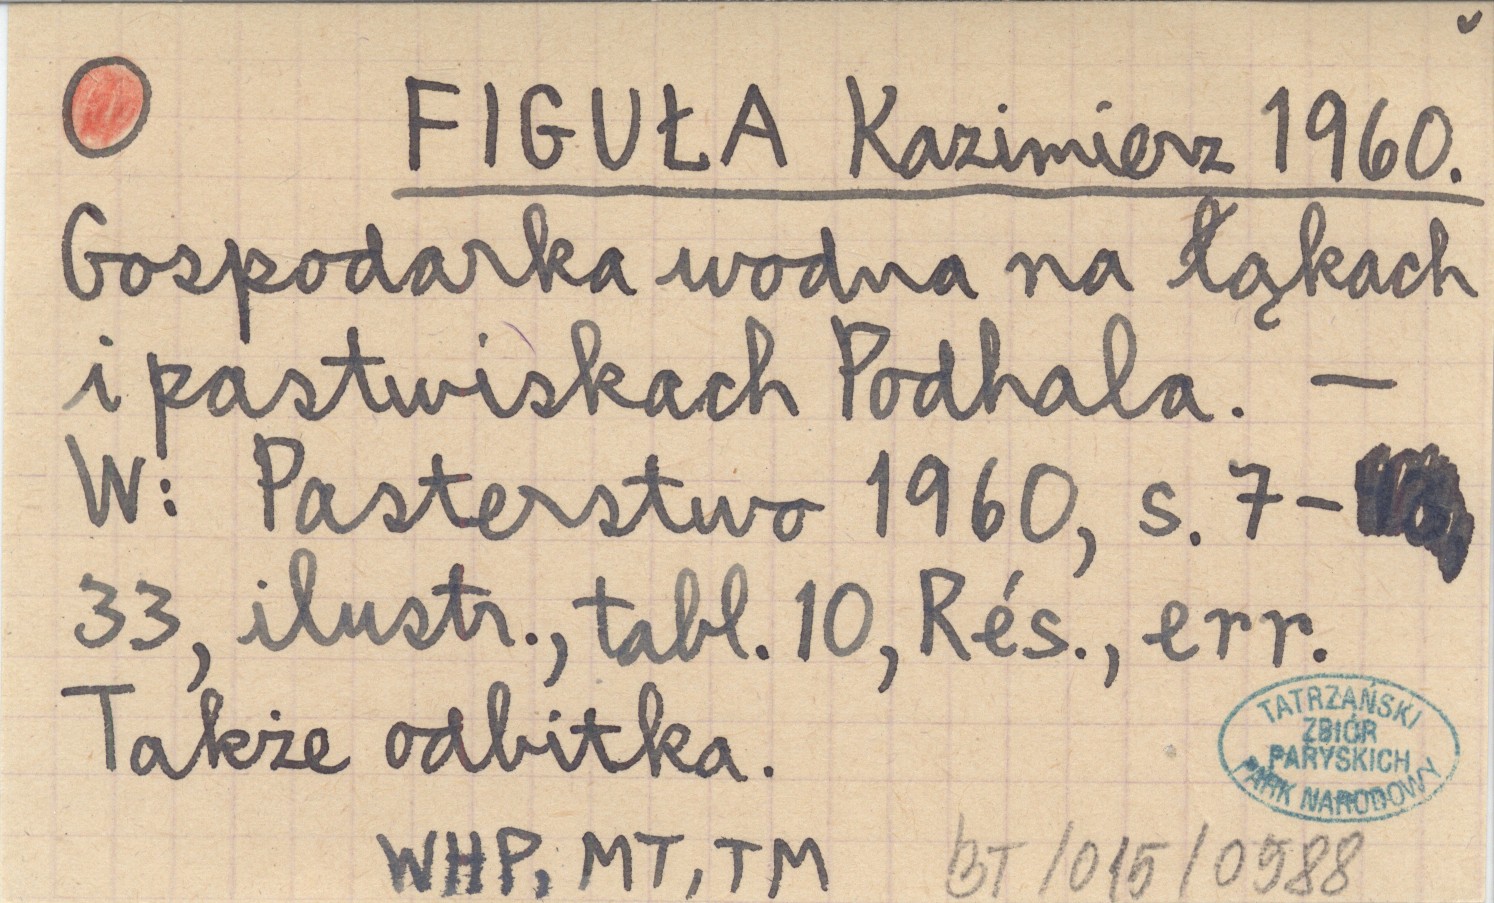 FIGUŁA Kazimierz 1960.
Gospodarka wodna na łąkach
i pastwiskach Podhala. —
W: Pasterstwo 1960, s. 7-
33, ilustr., tabl. 10, Rés., err.
Także odbitka.
TATRZAŃSKI
ZBIÓR
PARYSKICH
PARK NARODOWY
WHP, MT, TM
BT/015/0988